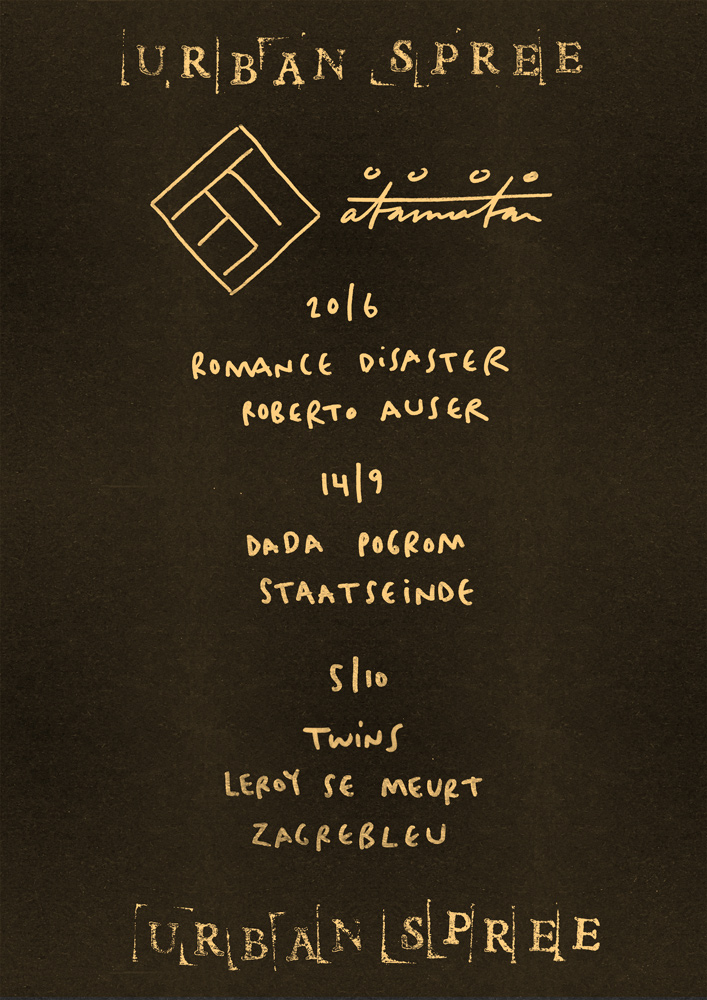 URBAN SPREE
atamatar
20/6
ROMANCE DiSASTER
ROBERTO AUSER
14/9
DADA POGROM
STAATSEiNDE
5/10
TWiNS
LEROY SE MEURT
ZAGREBLEU
URBAN SPREE